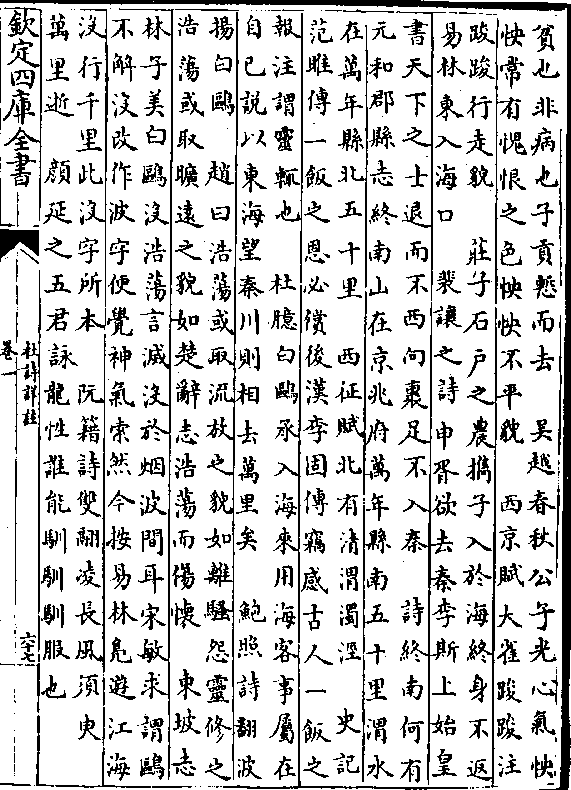 貧也非病也子貢慙而去　吳越春秋公子光心氣怏
怏常有愧恨之色怏怏不平貌　西京賦大雀踆踆注
踆踆行走貌　莊子石戶之農攜子入於海終身不返
易林東入海口　裴讓之詩申胥欲去秦李斯上始皇
書天下之士退而不西向裹足不入秦　詩終南何有
元和郡縣志終南山在京兆府萬年縣南五十里渭水
在萬年縣北五十里　西征賦北有清渭濁涇　史記
范雎傳一飯之恩必償後漢李固傳竊感古人一飯之
報注謂靈輒也　杜臆白鷗承入海來用海客事屬在
自己說以東海望秦川則相去萬里矣　鮑照詩翻波
揚白鷗　趙曰浩蕩或取流放之貌如離騷怨靈修之
浩蕩或取曠遠之貌如楚辭志浩蕩而傷懷　東坡志
林子美白鷗沒浩蕩言滅沒於烟波間耳宋敏求謂鷗
不解沒改作波字便覺神氣索然今按易林鳧遊江海
沒行千里此沒字所本　阮籍詩雙翮凌長風須臾
萬里逝　顏延之五君詠龍性誰能馴馴馴服也
欽定四庫全書
杜詩詳註
卷一
六七